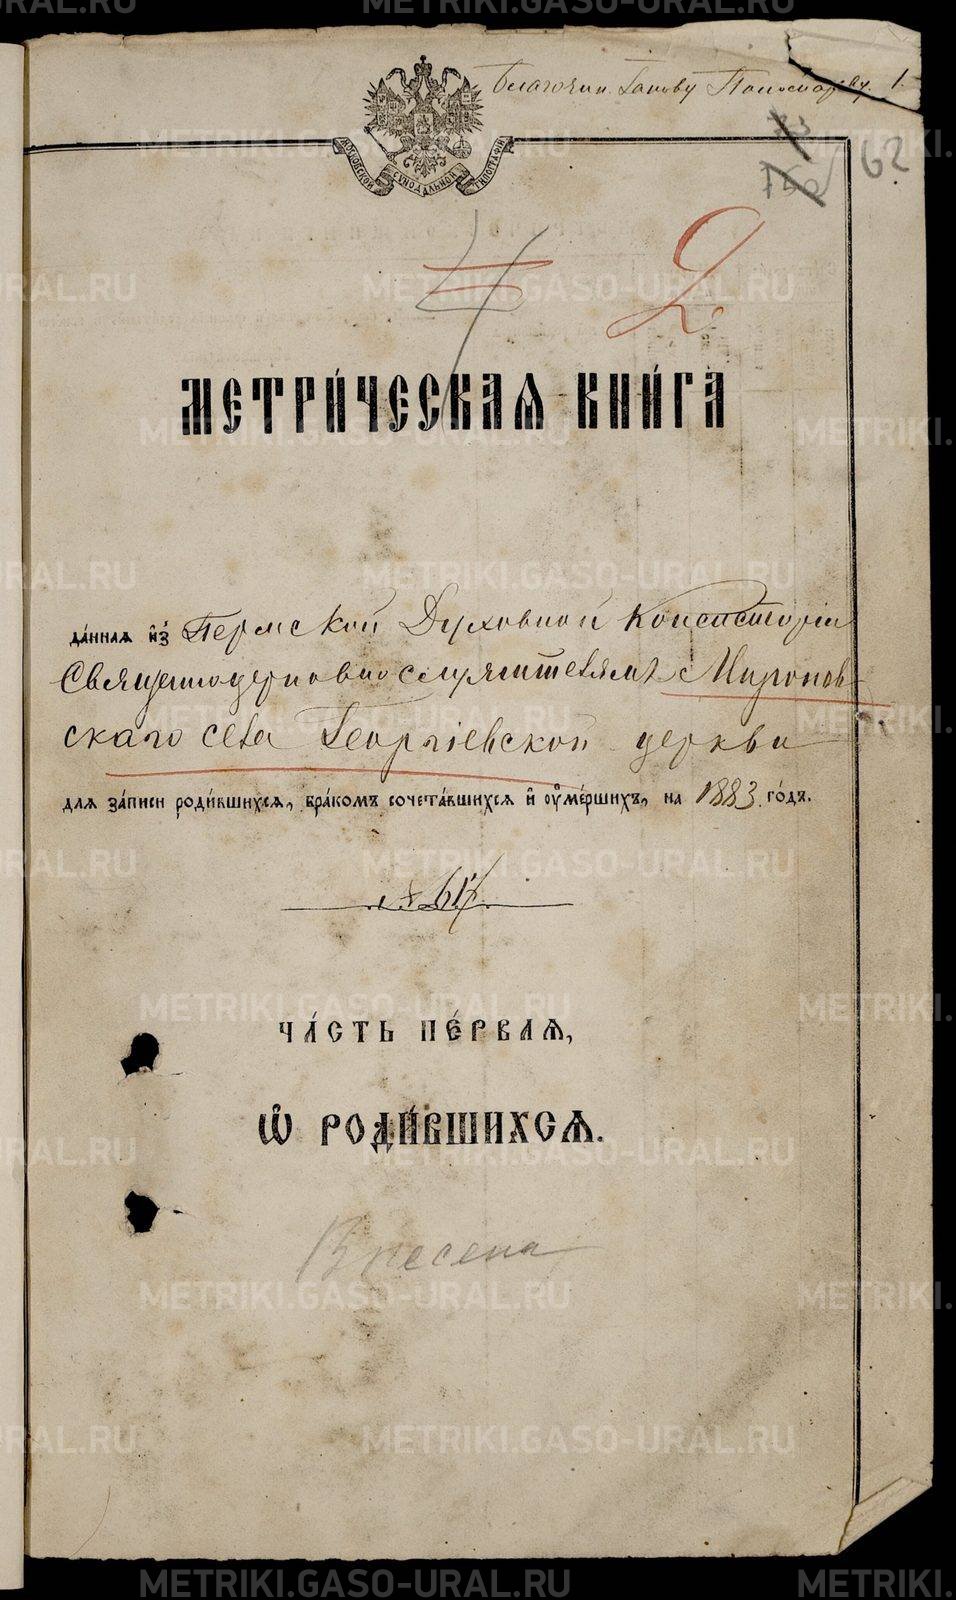 Благочин. Іакову Пономареву. 1.
МОСКОВСКОЙ СѴНОДАЛЬНОЙ ТИПОГРАФІИ
62
4
2
МЕТРИ́ЧЕСКАѦ КНИ́ГА
да́нная и҆з̾ Пермской Духовной Консисторіи
Священноцерковнослужителямъ Миронов-
скаго села Георгіевской церкви
для за́писи роди́вшихся, бра́комъ сочета́вшихся и҆ оу҆ме́ршихъ, на 1883 го́дъ.
№ 617.
ЧА́СТЬ ПЕ́РВАѦ,
Ѽ РОДИ́ВШИХСѦ.
Внесена
METRIKI.GASO-URAL.RU